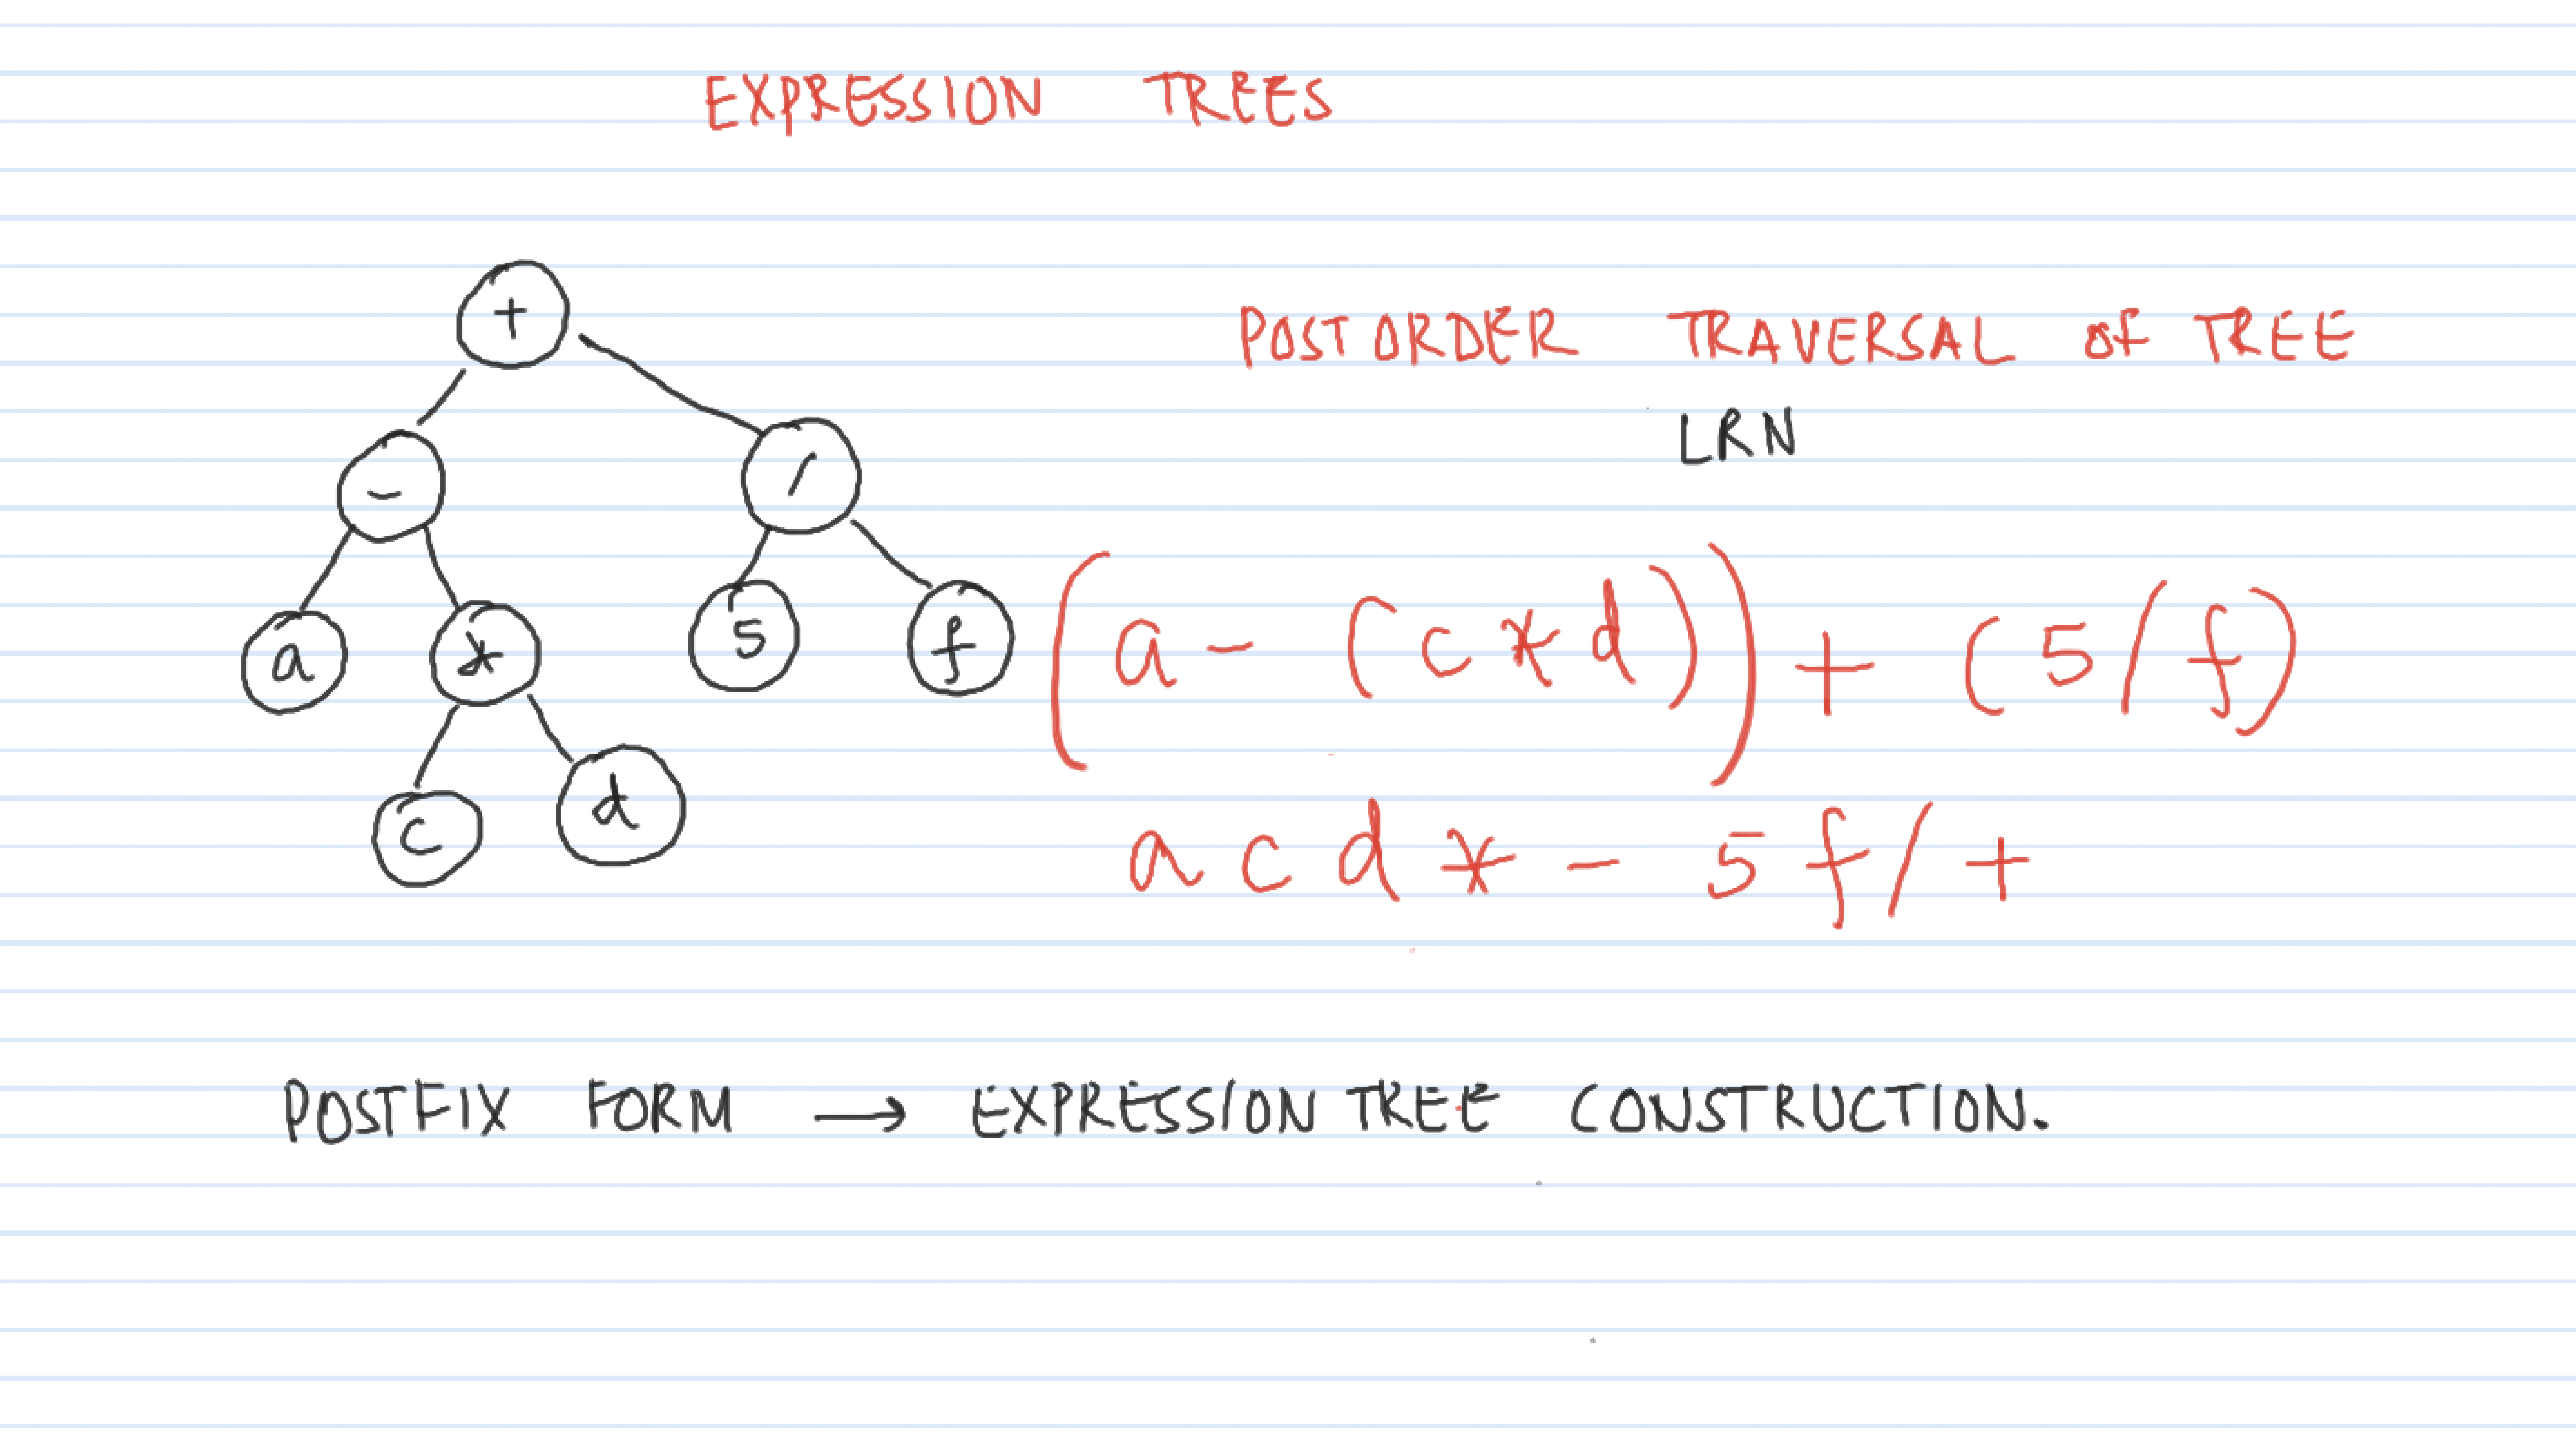 EXPRESSION TREES
+
POSTORDER TRAVERSAL OF TREE
LRN
- /
a * 5 f
(a - (c * d)) + (5 / f)
c d
a c d * - 5 f / +
POSTFIX FORM → EXPRESSION TREE CONSTRUCTION.